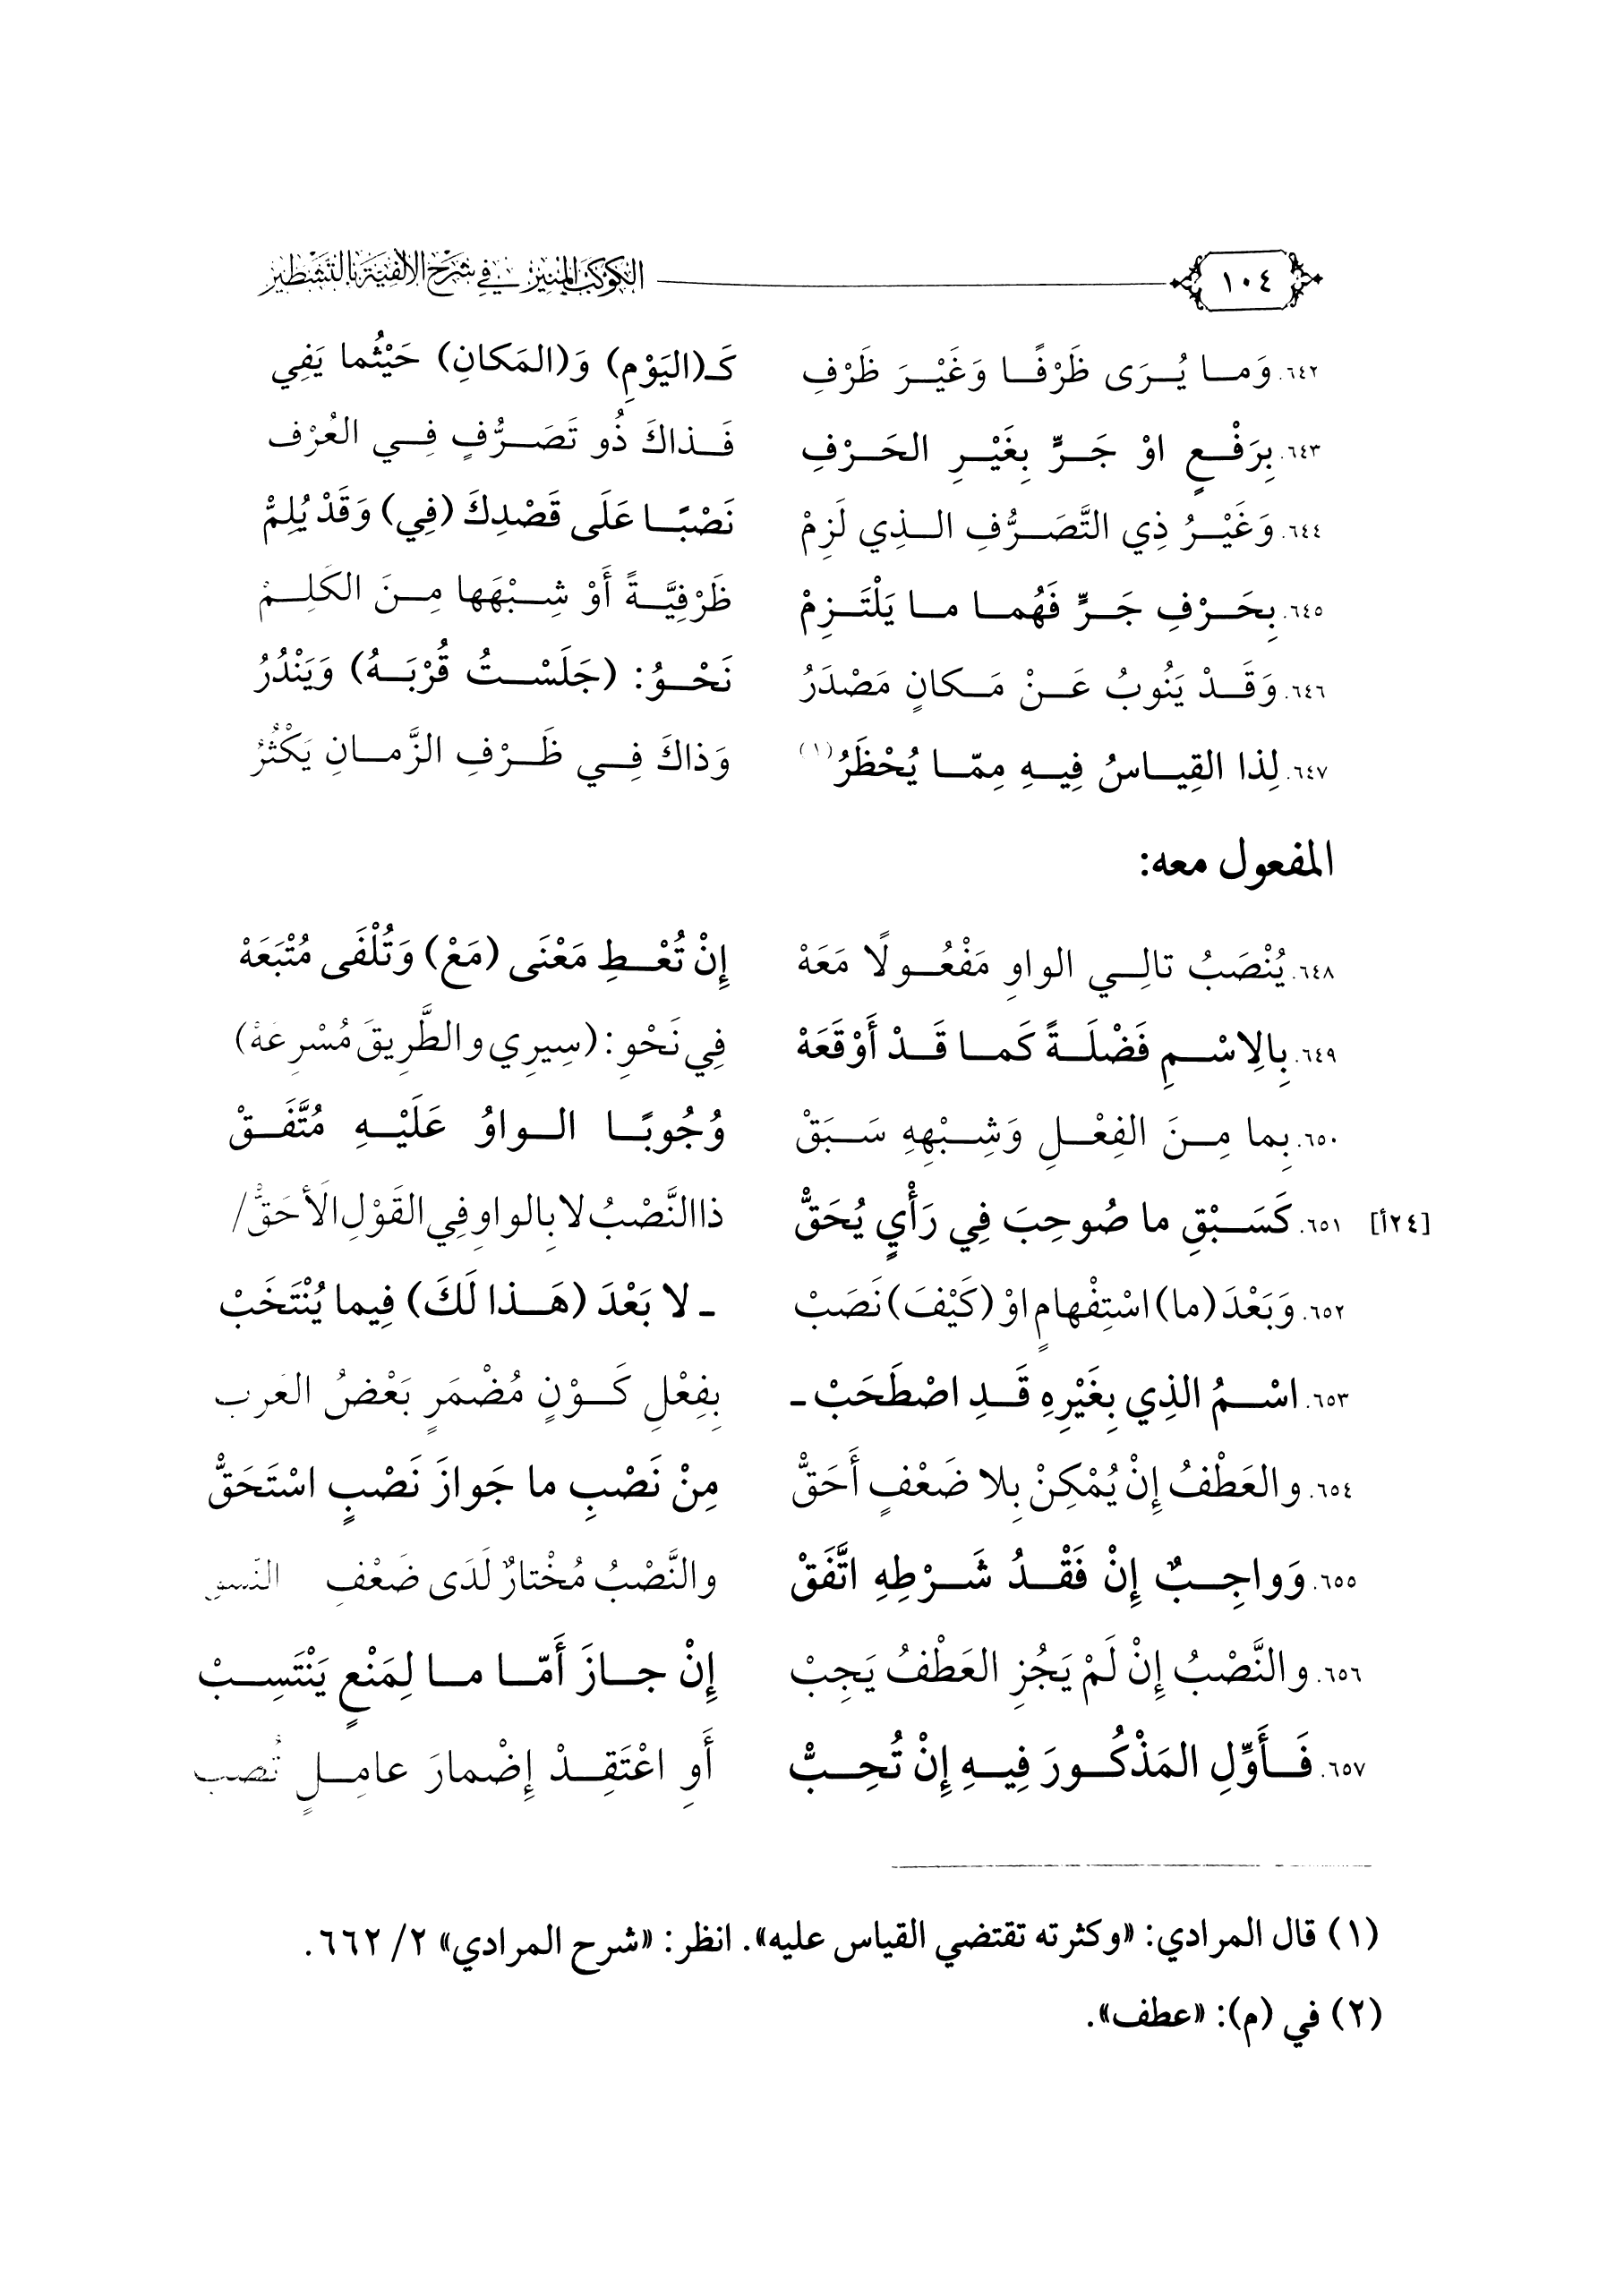 ١٠٤ الكوكب المنير في شرح الألفية بالتشطير
٦٤٢. وَمـا يُـرَى ظَرْفًـا وَغَيْـرَ ظَرْفِ كَـ(اليَوْمِ) وَ(المَكانِ) حَيْثُما يَفِي
٦٤٣. بِرَفْـعٍ اوْ جَـرٍّ بِغَيْـرِ الحَـرْفِ فَـذاكَ ذُو تَصَـرُّفٍ فِـي العُرْفِ
٦٤٤. وَغَيْـرُ ذِي التَّصَـرُّفِ الـذِي لَزِمْ نَصْبًـا عَلَى قَصْدِكَ (فِي) وَقَدْ يُلِمّْ
٦٤٥. بِحَـرْفِ جَـرٍّ فَهُمـا مـا يَلْتَـزِمْ ظَرْفِيَّـةً أَوْ شِـبْهَها مِـنَ الكَلِـمْ
٦٤٦. وَقَـدْ يَنُوبُ عَـنْ مَـكانٍ مَصْدَرُ نَحْـوُ: (جَلَسْـتُ قُرْبَـهُ) وَيَنْدُرُ
٦٤٧. لِذا القِيـاسُ فِيـهِ مِمّـا يُحْظَرُ(١) وَذاكَ فِـي ظَـرْفِ الزَّمـانِ يَكْثُرُ
المفعول معه:
٦٤٨. يُنْصَبُ تالِـي الواوِ مَفْعُـولًا مَعَهْ إِنْ تُعْـطِ مَعْنَى (مَعْ) وَتُلْفَى مُتْبَعَهْ
٦٤٩. بِالِاسْـمِ فَضْلَـةً كَمـا قَـدْ أَوْقَعَهْ فِي نَحْوِ: (سِيرِي والطَّرِيقَ مُسْرِعَهْ)
٦٥٠. بِما مِـنَ الفِعْـلِ وَشِـبْهِهِ سَـبَقْ وُجُوبًـا الـواوُ عَلَيْـهِ مُتَّفَـقْ
[٢٤أ] ٦٥١. كَسَـبْقِ ما صُوحِبَ فِي رَأْيٍ يُحَقّْ ذا النَّصْبُ لا بِالواوِ فِي القَوْلِ الَأحَقّْ/
٦٥٢. وَبَعْدَ (ما) اسْتِفْهامٍ اوْ (كَيْفَ) نَصَبْ ـ لا بَعْدَ (هَـذا لَكَ) فِيما يُنْتَخَبْ
٦٥٣. اسْـمُ الذِي بِغَيْرِهِ قَـدِ اصْطَحَبْ ـ بِفِعْلِ كَـوْنٍ مُضْمَرٍ بَعْضُ العَرب
٦٥٤. والعَطْفُ إِنْ يُمْكِنْ بِلا ضَعْفٍ أَحَقّْ مِنْ نَصْبِ ما جَوازَ نَصْبٍ اسْتَحَقّْ
٦٥٥. وَواجِـبٌ إِنْ فَقْـدُ شَـرْطِهِ اتَّفَقْ والنَّصْبُ مُخْتارٌ لَدَى ضَعْفِ النّسق
٦٥٦. والنَّصْبُ إِنْ لَمْ يَجُزِ العَطْفُ يَجِبْ إِنْ جـازَ أَمّـا مـا لِمَنْعٍ يَنْتَسِـبْ
٦٥٧. فَـأَوِّلِ المَذْكُـورَ فِيـهِ إِنْ تُحِـبّْ أَوِ اعْتَقِـدْ إِضْمارَ عامِـلٍ تُصب
(١) قال المرادي: «وكثرته تقتضي القياس عليه». انظر: «شرح المرادي» ٢/ ٦٦٢.
(٢) في (م): «عطف».